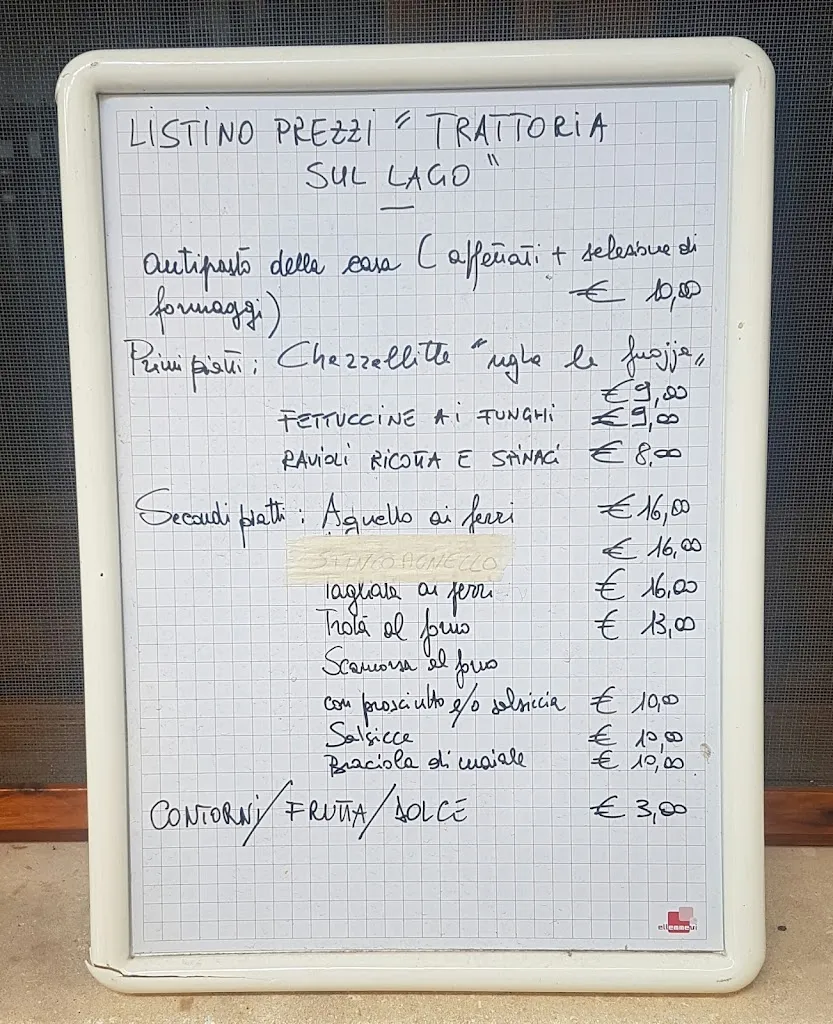 LISTINO PREZZI " TRATTORIA
SUL LAGO "
Antipasto della casa ( affettati + selezione di
formaggi) € 10,00
Primi piatti : Chezzellitte " nghe le fuojje "
€ 9,00
FETTUCCINE AI FUNGHI € 9,00
RAVIOLI RICOTTA E SPINACI € 8,00
Secondi piatti : Agnello ai ferri € 16,00
STINCO AGNELLO € 16,00
Tagliata ai ferri € 16,00
Trota al forno € 13,00
Scamorza al forno
con prosciutto e/o salsiccia € 10,00
Salsicce € 10,00
Braciola di maiale € 10,00
CONTORNI/ FRUTTA/ DOLCE € 3,00
ellemmevi